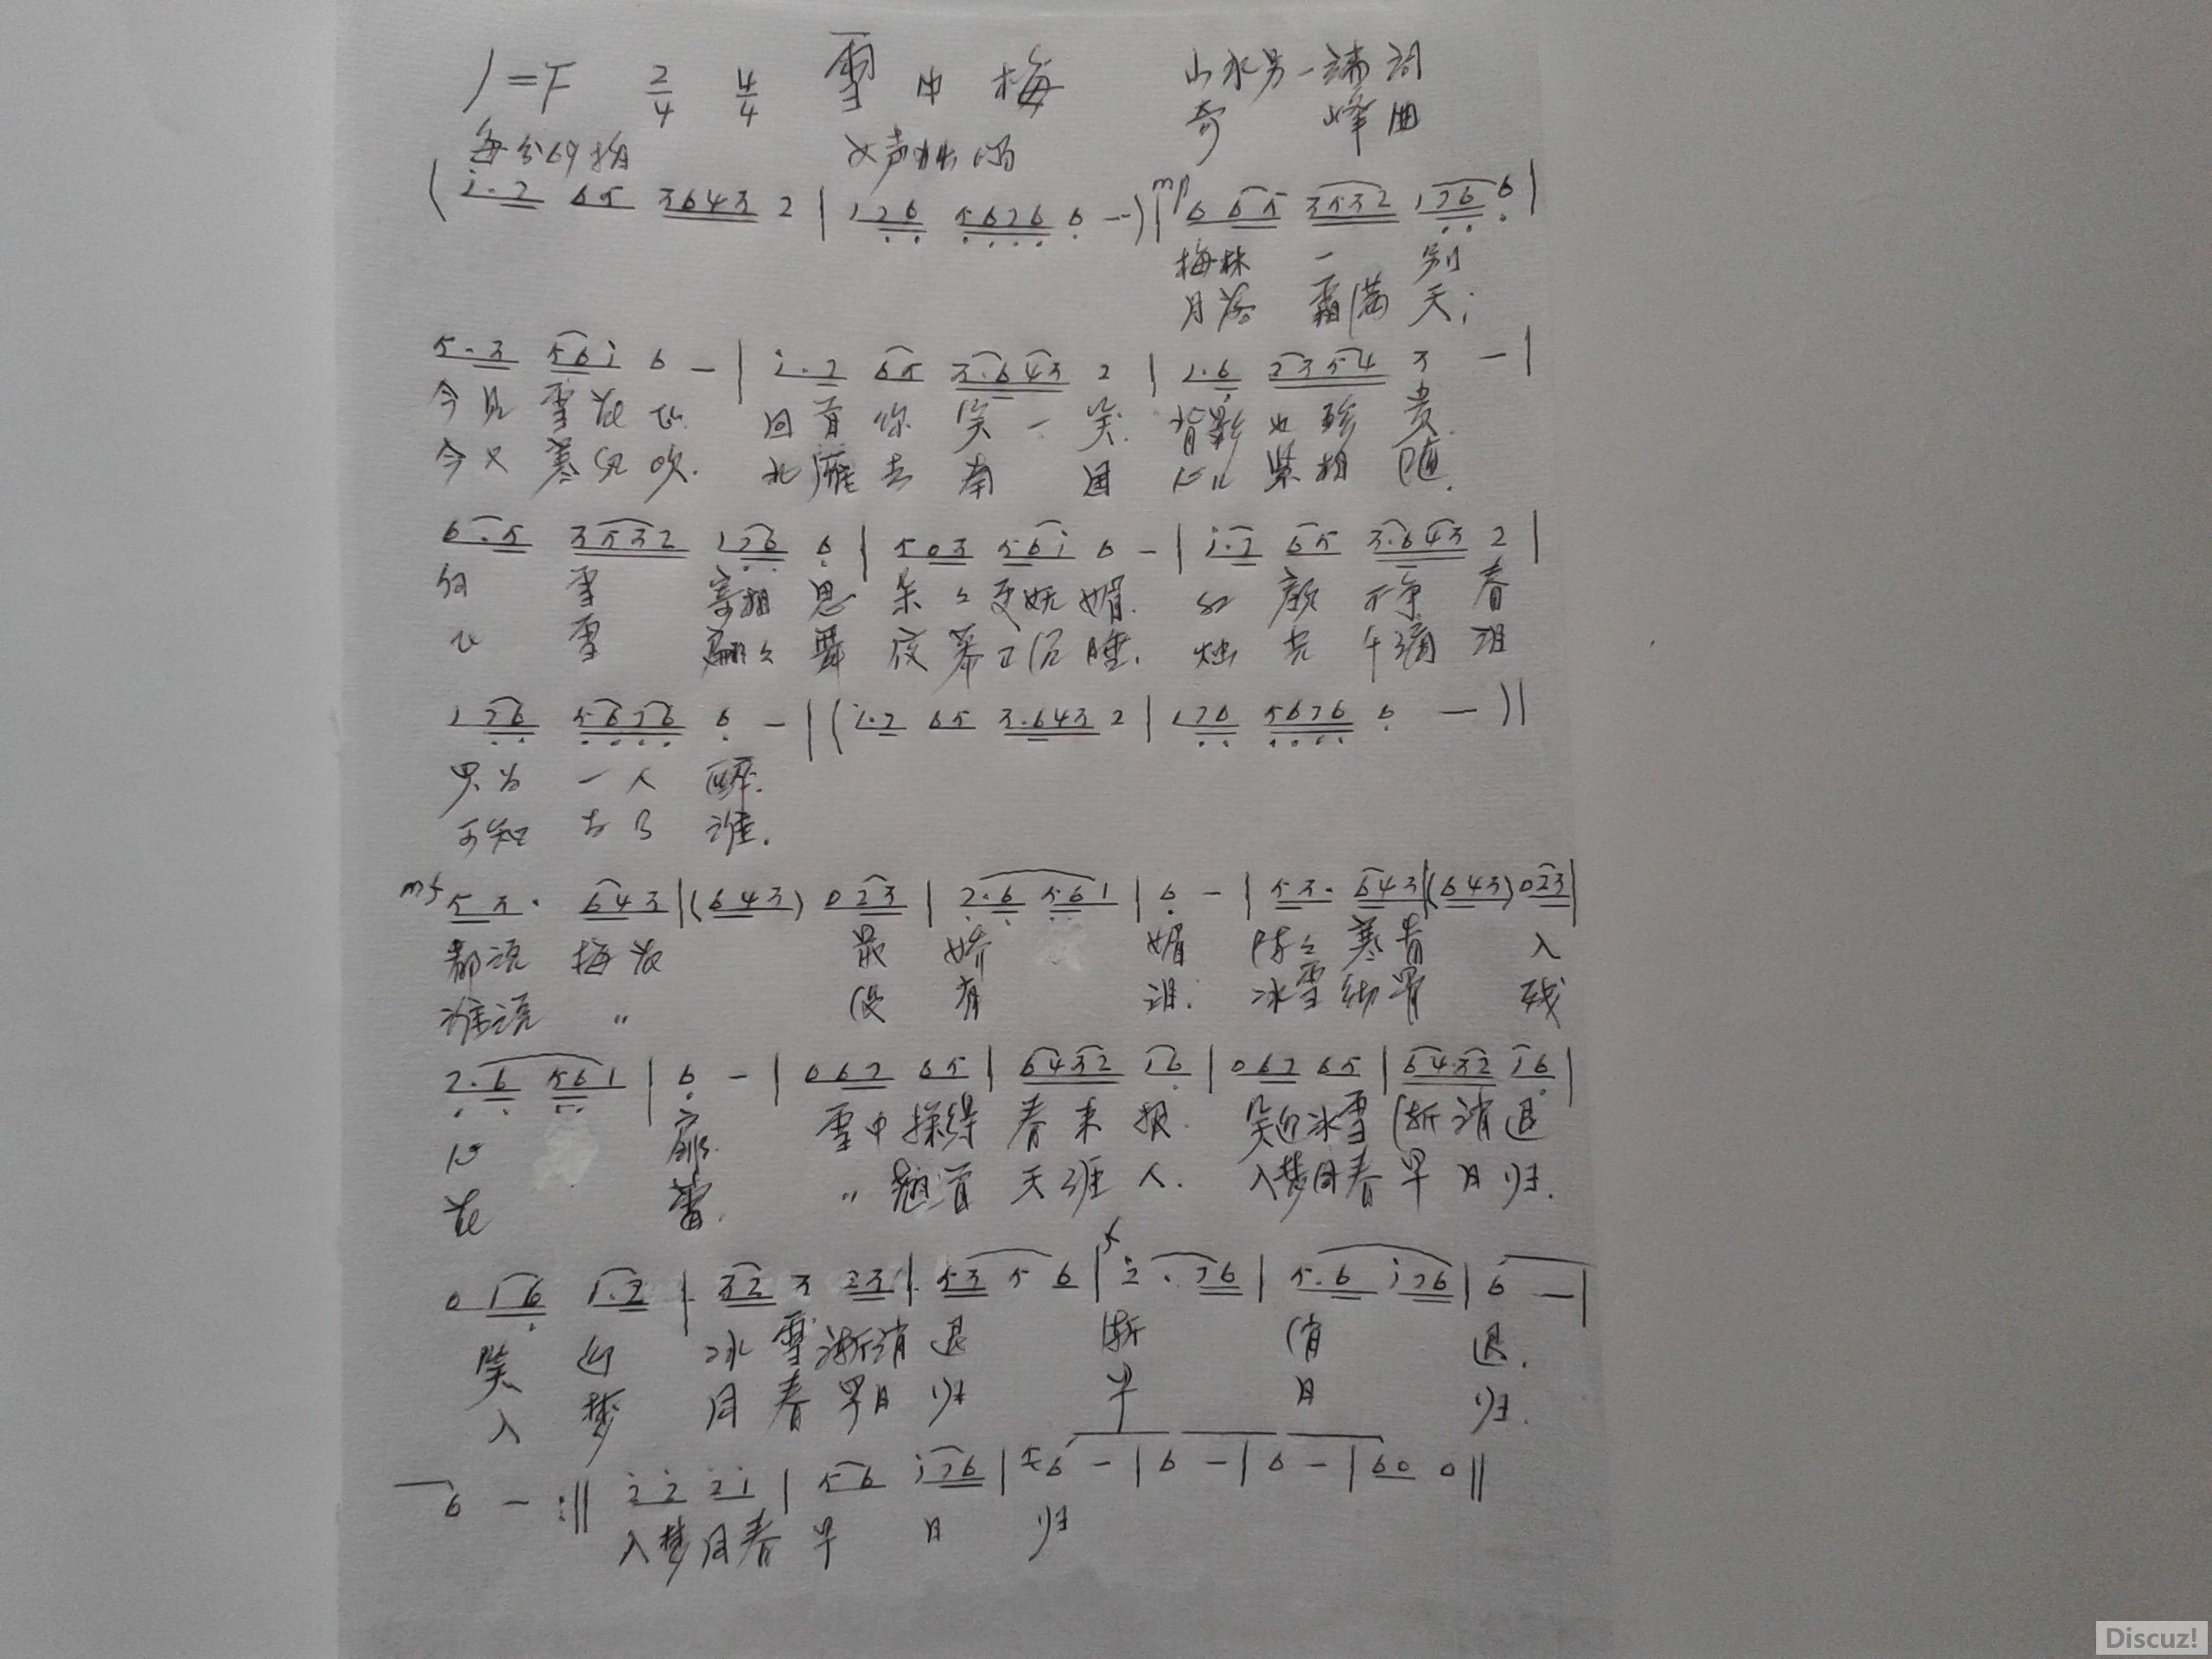 1=F 2/4 4/4 雪中梅 山水另一端 词
奇峰 曲
每分69拍 女声独唱
(i·2 65 3643 2 | 176 5676 6 -) | mp 6 65 3532 176 6 |
梅林 一 别
月落 霜满 天;
5·3 561 6 - | i·2 65 3·643 2 | 1·6 2354 3 - |
今见 雪花飞 回首你笑一笑 背影也珍贵
今又 寒风吹. 北雁去南国 心儿紧相随.
6·5 3532 176 6 | 503 561 6 - | i·2 65 3·643 2 |
雪 寄相思 朵々更妩媚. 红颜不争春
飞 雪 翩々舞 夜幕已沉睡. 烛光 泪
1 76 5676 6 - | (i·2 65 3·643 2 | 176 5676 6 - ) ||
只为 一人 醉.
可知 为了 谁.
mf 5 3· 643 | (643) 023 | 2·6 561 | 6 - | 53· 643 | (643) 023 |
都说 梅花 最 娇 媚 阵々寒香 入
谁说 〃 没有 泪. 冰雪 骨 残
2·6 561 | 6 - | 062 65 | 6432 16 | 062 65 | 6432 16 |
心 扉. 雪中 春来报. 笑迎冰雪渐消退
花 蕾. 〃 天涯人. 入梦回春早日归.
0 16 1·2 | 32 3 23 | 53 5 6 | f 2·76 | 5·6 i76 | 6 - |
笑 迎 冰雪渐消退 渐 消 退.
入 梦 回春早日归 早 日 归.
6 - :|| 22 21 | 56 i76 | 56 - | 6 - | 6 - | 60 0 ||
入梦回春 早 日 归
Discuz!